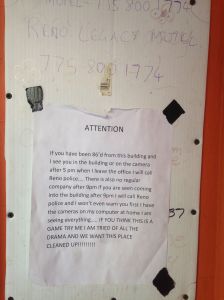 MOTEL - 775.800.1774
RENO LEGACY MOTEL
775.800.1774
ATTENTION
If you have been 86'd from this building and
I see you in the building or on the camera
after 5 pm when I leave the office I will call
Reno police.... There is also no regular
company after 9pm if you are seen coming
into the building after 9pm I will call Reno
police and I won't even warn you first I have
the cameras on my computer at home I am
seeing everything..... IF YOU THINK THIS IS A
GAME TRY ME I AM TRIED OF ALL THE
DRAMA AND WE WANT THIS PLACE
CLEANED UP!!!!!!!!!!